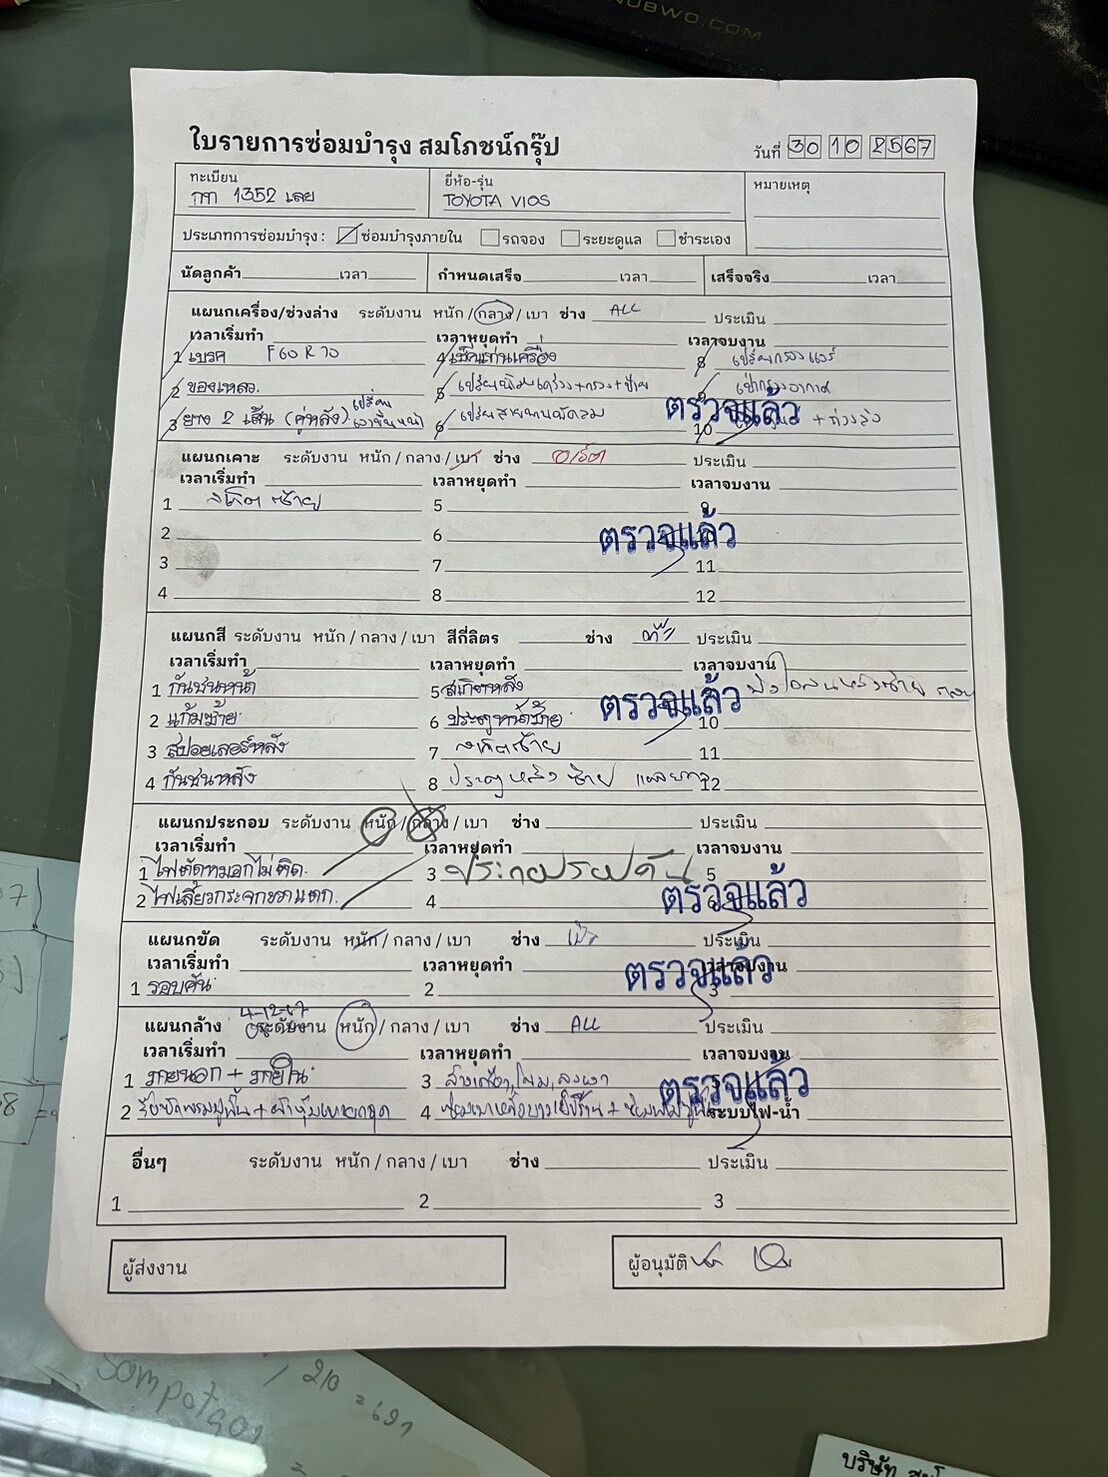 NUBWO.COM
ใบรายการซ่อมบำรุง สมโภชน์กรุ๊ป
วันที่ 30 10 2567
ทะเบียน ยี่ห้อ-รุ่น หมายเหตุ
กท 1352 เลย TOYOTA VIOS
ประเภทการซ่อมบำรุง : ซ่อมบำรุงภายใน รถจอง ระยะดูแล ชำระเอง
นัดลูกค้า เวลา กำหนดเสร็จ เวลา เสร็จจริง เวลา
แผนกเครื่อง/ช่วงล่าง ระดับงาน หนัก / กลาง / เบา ช่าง ALL ประเมิน
เวลาเริ่มทำ เวลาหยุดทำ เวลาจบงาน
1 เบรค F60 R70 4 เช็คแท่นเครื่อง 8 เปลี่ยนกรองแอร์
2 ของเหลว. 5 เปลี่ยนน้ำมันเครื่อง+กรอง+ป้าย 9 เป่ากรองอากาศ
3 ยาง 2 เส้น (คู่หลัง) เปลี่ยนเอาขึ้นหน้า 6 เปลี่ยนสายพานพัดลม 10 + ถ่วงล้อ
ตรวจแล้ว
แผนกเคาะ ระดับงาน หนัก / กลาง / เบา ช่าง ประเมิน
เวลาเริ่มทำ เวลาหยุดทำ เวลาจบงาน
1 สเกิตซ้าย 5 9
2 6 10
ตรวจแล้ว
3 7 11
4 8 12
แผนกสี ระดับงาน หนัก / กลาง / เบา สีกี่ลิตร ช่าง ประเมิน
เวลาเริ่มทำ เวลาหยุดทำ เวลาจบงาน
1 กันชนหน้า 5 สเกิตหลัง
2 แก้มซ้าย 6 ประตูหน้าซ้าย 10
ตรวจแล้ว
3 สปอยเลอร์หลัง 7 สเกิตซ้าย 11
4 กันชนหลัง 8 ประตูหลังซ้าย 12
แผนกประกอบ ระดับงาน หนัก / กลาง / เบา ช่าง ประเมิน
เวลาเริ่มทำ เวลาหยุดทำ เวลาจบงาน
1 ไฟตัดหมอกไม่ติด. 3 ประกอบรอบคัน 5
2 ไฟเลี้ยวกระจกขวาแตก. 4 6
ตรวจแล้ว
แผนกขัด ระดับงาน หนัก / กลาง / เบา ช่าง ประเมิน
เวลาเริ่มทำ เวลาหยุดทำ เวลาจบงาน
1 รอบคัน 2 3
ตรวจแล้ว
4-12-67
แผนกล้าง ระดับงาน หนัก / กลาง / เบา ช่าง ALL ประเมิน
เวลาเริ่มทำ เวลาหยุดทำ เวลาจบงาน
1 ภายนอก + ภายใน 3
ตรวจแล้ว
2 4 ระบบไฟ-น้ำ
อื่นๆ ระดับงาน หนัก / กลาง / เบา ช่าง ประเมิน
1 2 3
ผู้ส่งงาน ผู้อนุมัติ
210